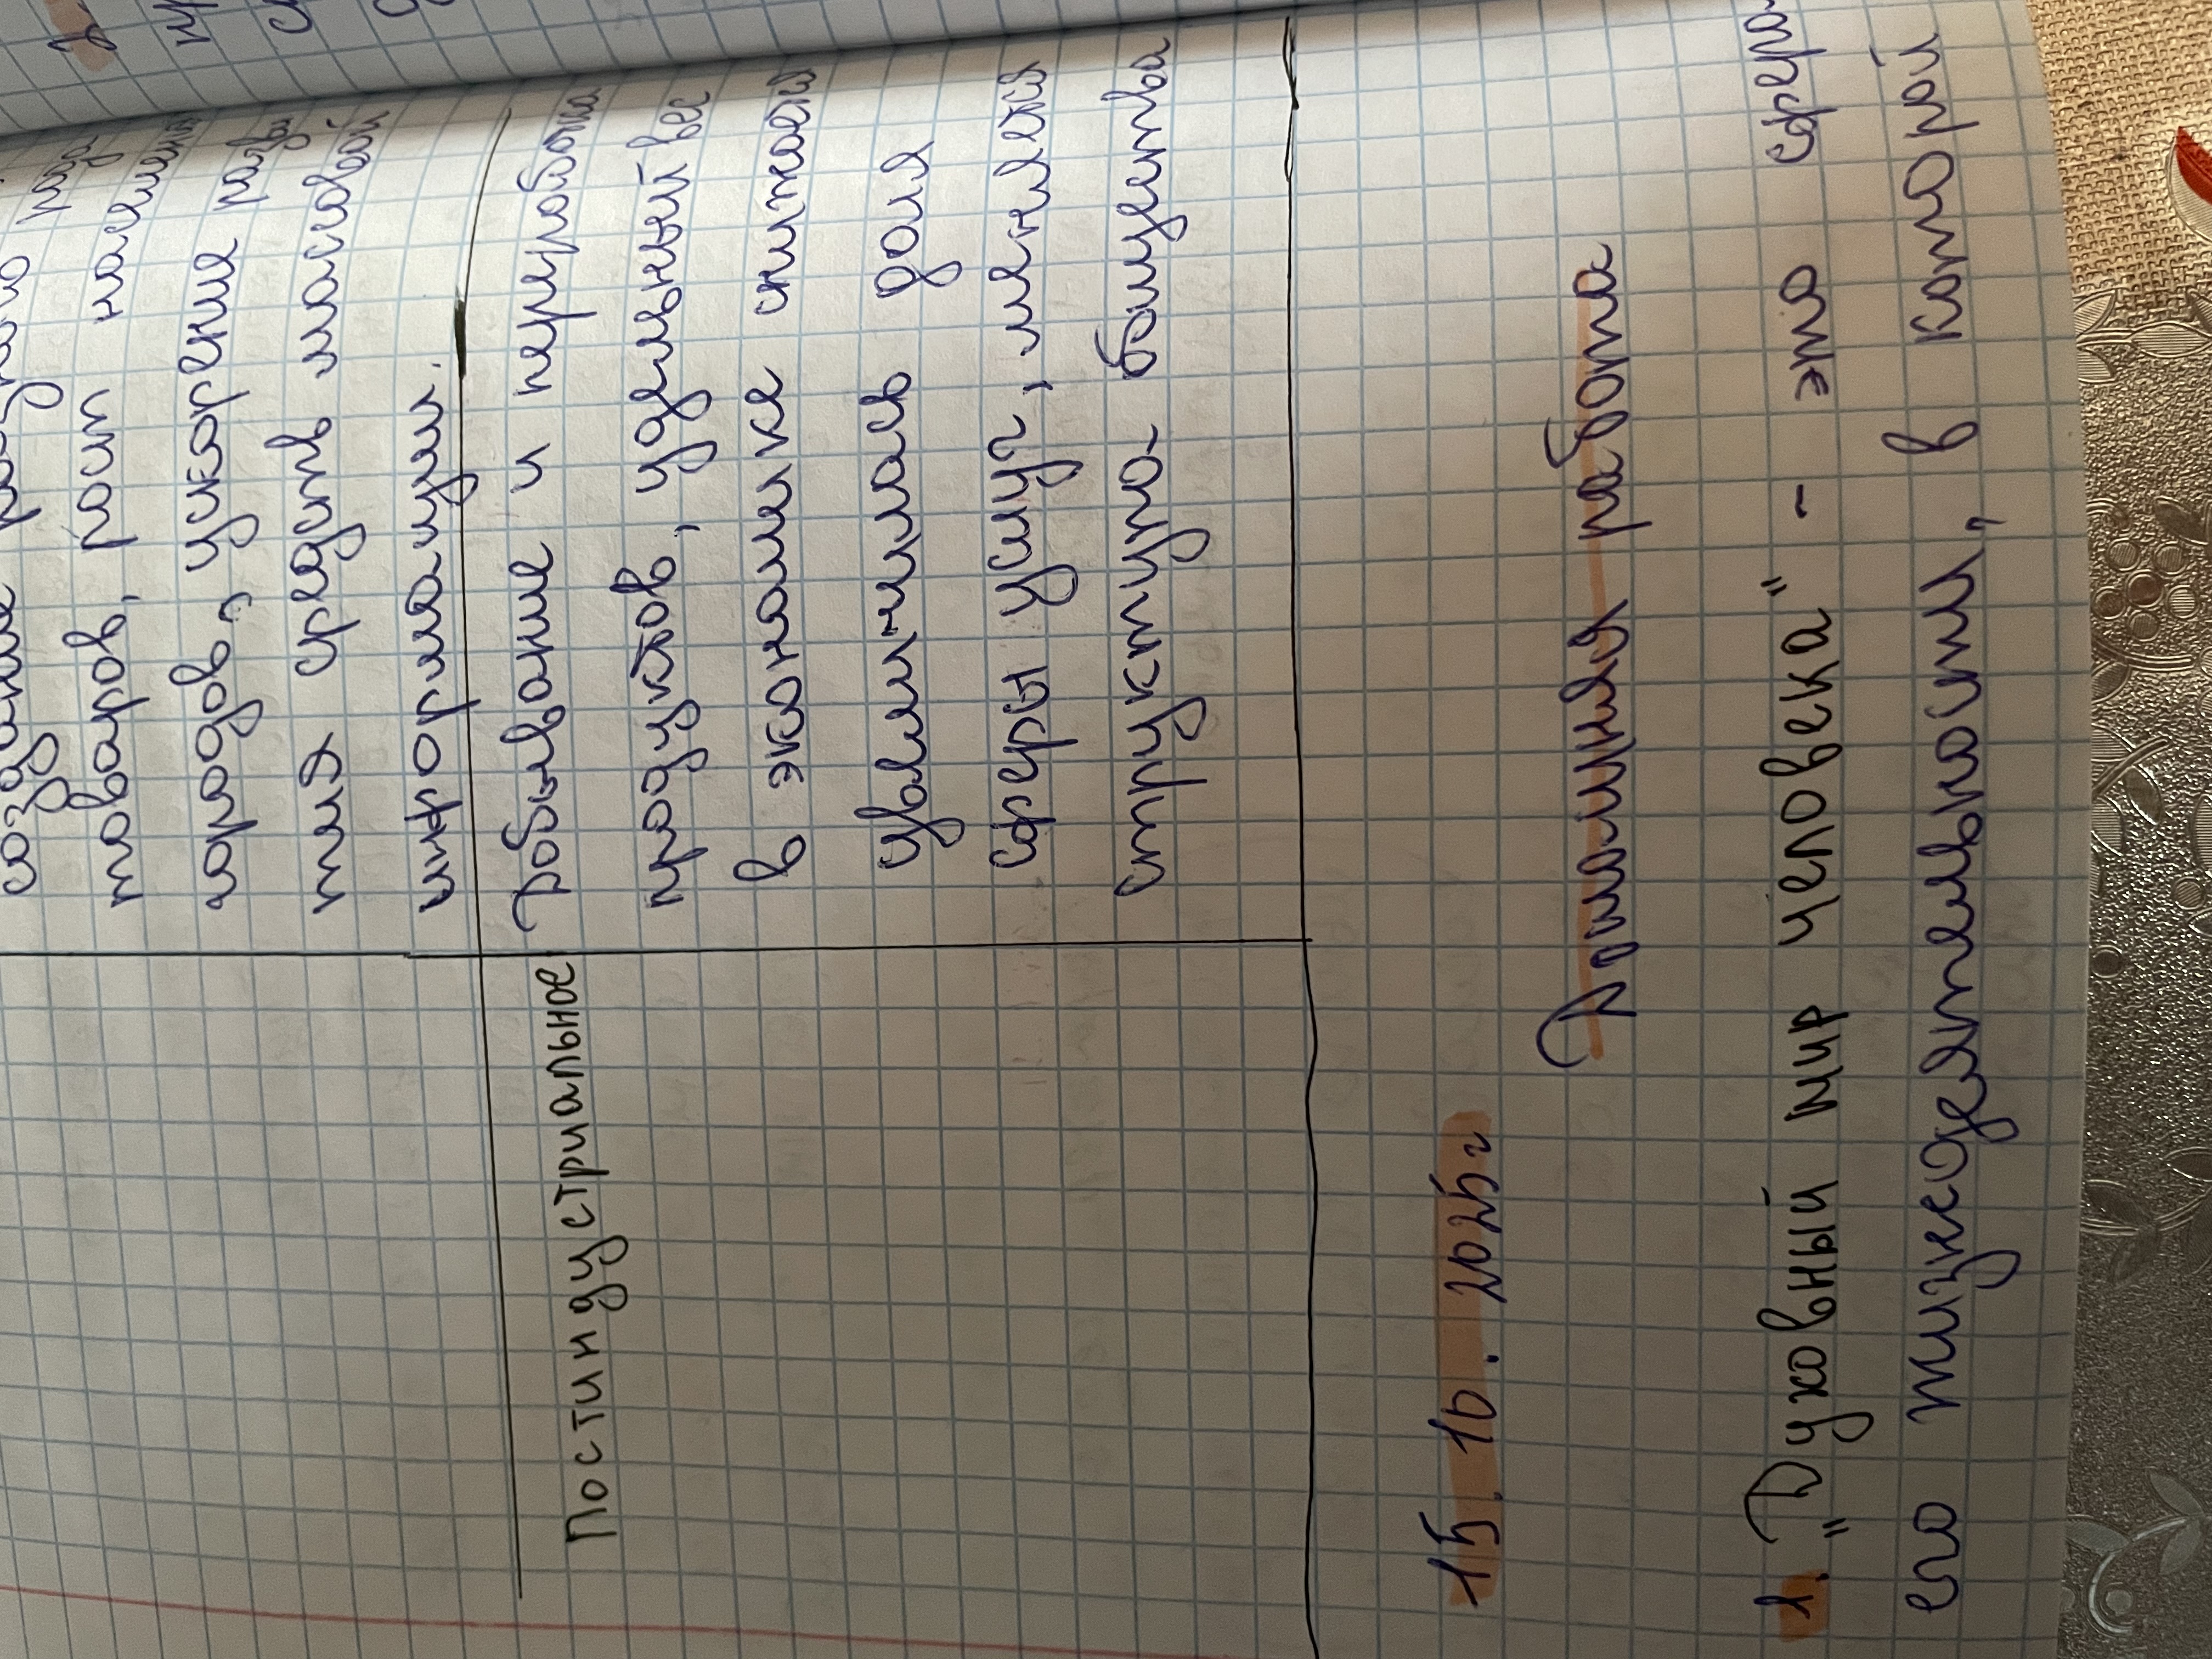 создание
товаров, рост населения
городов, ускорение разви
тия средств массовой
информации.
Постиндустриальное
Добывание и переработка
продуктов, удельный вес
в экономике снижается
увеличилась доля
сферы услуг, меняется
структура общества
15. 10. 2025г
Домашняя работа
1. "Духовный мир человека" - это сфера
его жизнедеятельности, в которой